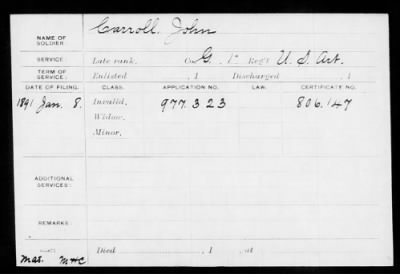 NAME OF SOLDIER: Carroll, John
SERVICE: Late rank, Co. G, 1st Reg't U. S. Art.
TERM OF SERVICE: Enlisted , 1 Discharged , 1
DATE OF FILING. CLASS. APPLICATION NO. LAW. CERTIFICATE NO.
1891 Jan. 8. Invalid, 977.323 806.147
Widow,
Minor,
ADDITIONAL SERVICES:
REMARKS:
Died , 1 , at
Mas. MHC